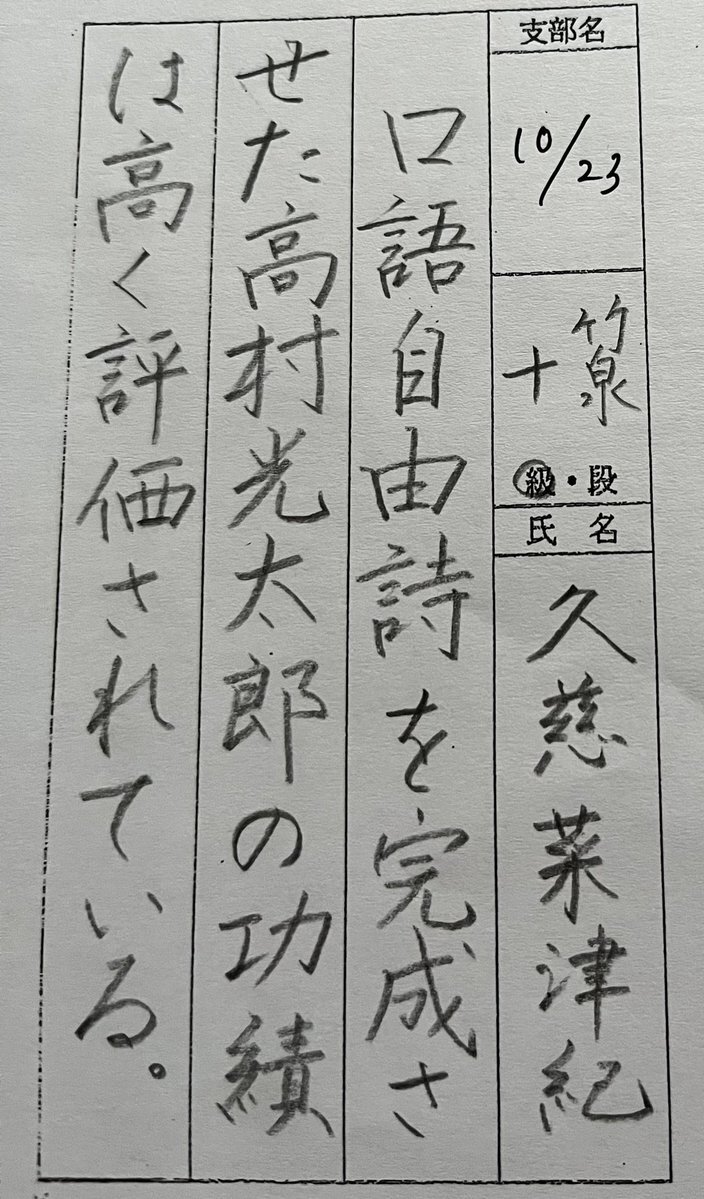 支部名
10/23
箢
十
級・段
氏名
久慈菜津紀
口語自由詩を完成さ
せた高村光太郎の功績
は高く評価されている。